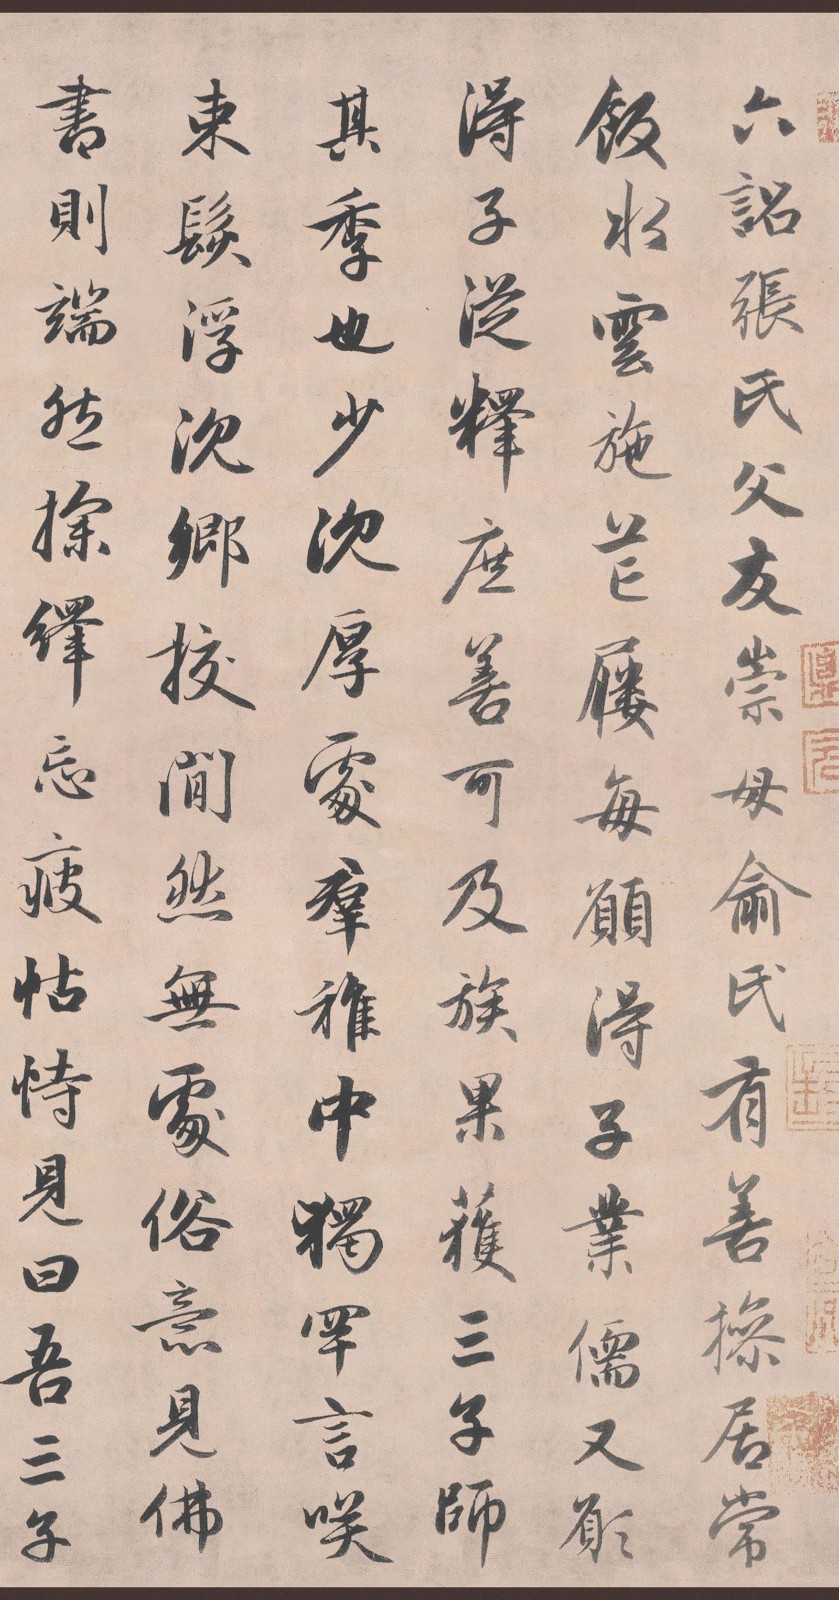 六詔張氏父友崇母俞氏有善操居常
飯水雲施芒屨每願得子業儒又願
得子從釋庶善可及族果獲三子師
其季也少沈厚處羣稚中獨罕言咲
束髮浮沈鄉校澗然無處俗意見佛
書則端然探繹忘疲怙恃見曰吾三子